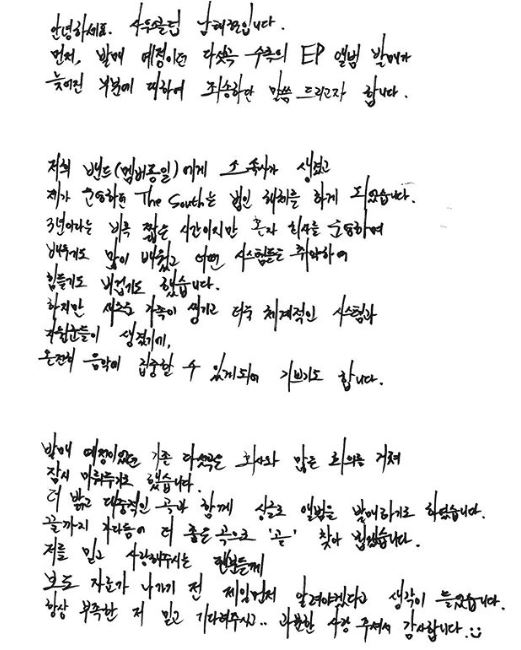 안녕하세요. 사우스클럽 남태현입니다.
먼저, 발매 예정이던 다섯곡 수록의 EP 앨범 발매가
늦어진 부분에 대하여 죄송하단 말씀 드리고자 합니다.
저희 밴드(멤버동일)에게 소속사가 생겼고
제가 운영하던 The South는 법인 해체를 하게 되었습니다.
3년이라는 비록 짧은 시간이지만 혼자 회사를 운영하며
배우기도 많이 배웠고 여러 시스템들도 취약하여
힘들기도 버겁기도 했습니다.
하지만 새로운 가족이 생기고 더욱 체계적인 시스템과
지원군들이 생겼기에,
온전히 음악에 집중할 수 있게되어 기쁘기도 합니다.
발매 예정이었던 기존 다섯곡은 회사와 많은 회의를 거쳐
잠시 미뤄두기로 했습니다.
더 밝고 대중적인 곡과 함께 싱글로 앨범을 발매하기로 하였습니다.
끝까지 가다듬어 더 좋은 곡으로 '곧' 찾아 뵙겠습니다.
저를 믿고 사랑해주시는 팬분들께
보도 자료가 나가기 전 제일먼저 알려야겠다고 생각이 들었습니다.
항상 부족한 저 믿고 기다려주시고.. 과분한 사랑 주셔서 감사합니다. :)